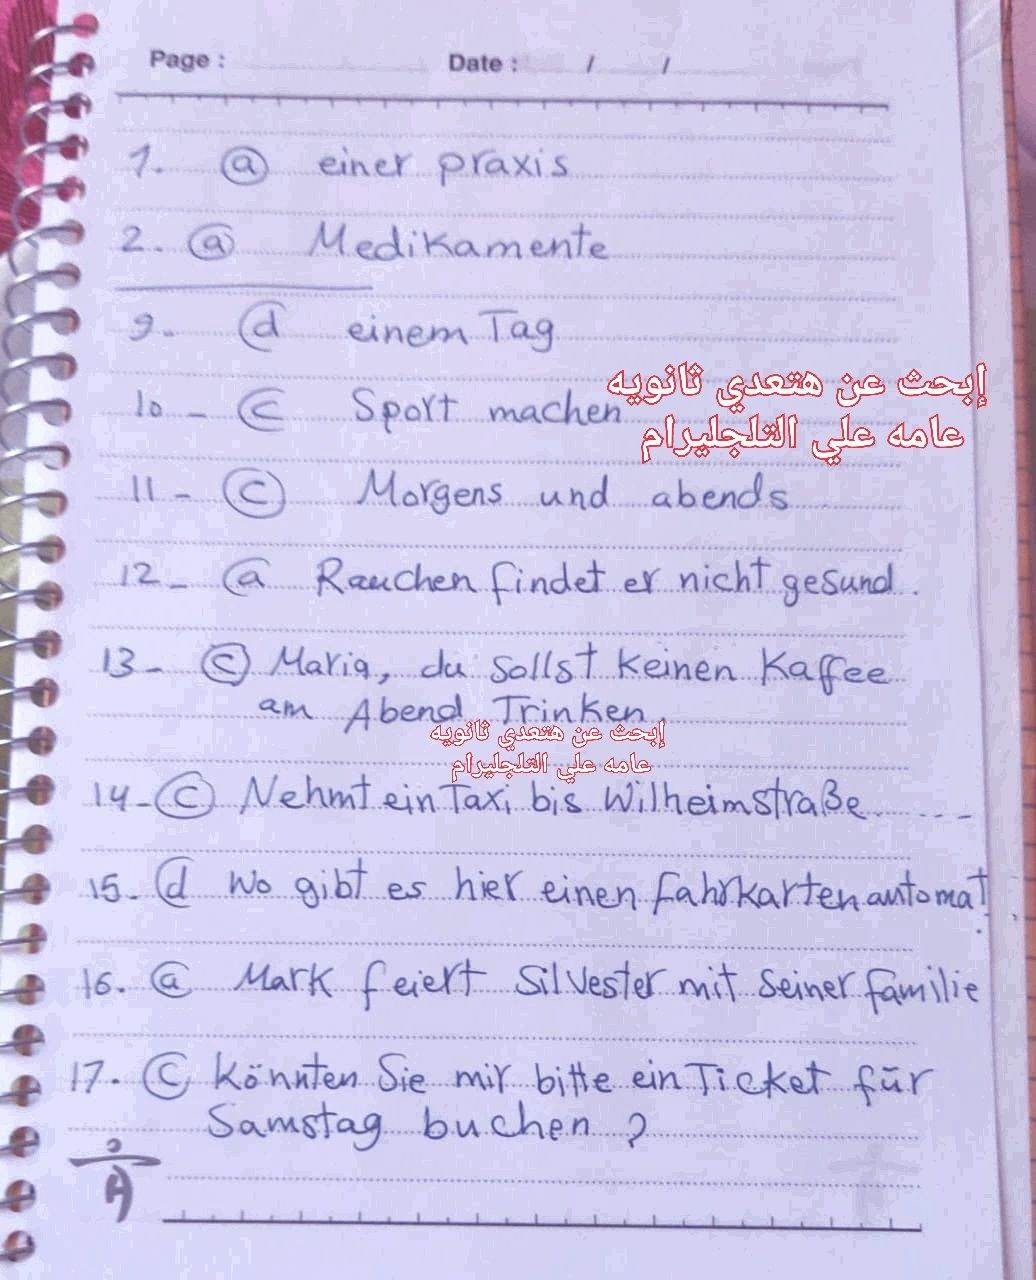 Page : Date : / /
1. (a) einer praxis
2. (a) Medikamente
9. (d) einem Tag
10 - (c) Sport machen
إبحث عن هتعدي ثانويه
عامه علي التلجليرام
11 - (c) Morgens und abends
12 - (a) Rauchen findet er nicht gesund.
13 - (c) Maria, du sollst keinen Kaffee
am Abend Trinken.
إبحث عن هتعدي ثانويه
عامه علي التلجليرام
14 - (c) Nehmt ein Taxi bis Wilheimstraße ...
15. (d) Wo gibt es hier einen Fahrkartenautomat
16. (a) Mark feiert Silvester mit seiner familie
17. (c) Könnten Sie mir bitte ein Ticket für
Samstag buchen ?